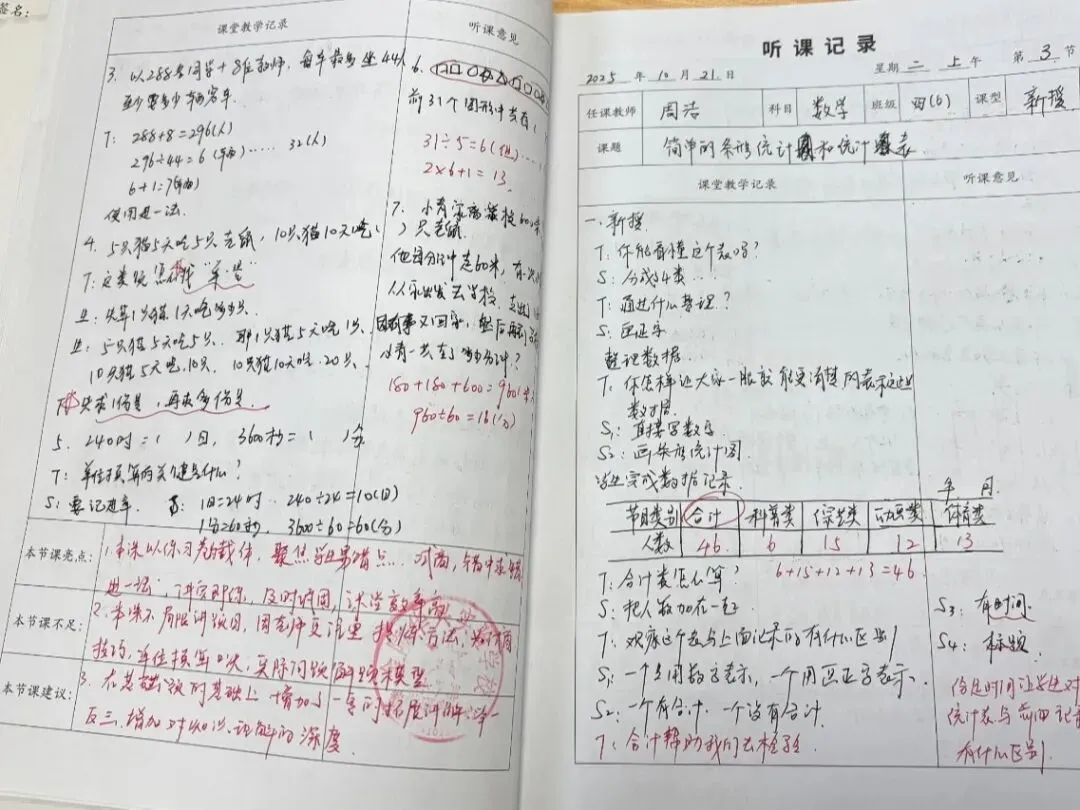 签名:
课堂教学记录
听课意见
3. 以288名同学+8位教师,每车最多坐44人
至少要多少辆客车.
T: 288+8=296(人)
296÷44=6(辆)……32(人)
6+1=7(辆)
使用进一法.
4. 5只猫5天吃5只老鼠,10只猫10天吃( )只老鼠.
T:这类题怎样找"单一"
生:先算1只猫1天吃多少只.
生:5只猫5天吃5只. 那1只猫5天吃1只.
10只猫5天吃10只. 10只猫10天吃20只.
先求1份是,再求多份是.
5. 240时=( )日, 3600秒=( )分
T:单位换算的关键是什么?
S:要记进率.
1日=24时 240÷24=10(日)
1分=60秒, 3600÷60=60(分)
6.
前31个图形中共有(
31÷5=6(组)……
2×6+1=13.
7. 小青家离学校600米,
他每分钟走60米,有一次
从家出发去学校,
因有事又回家,然后再到
小青一共走了多少分钟?
180+180+600=960(米)
960÷60=16(分)
本节课亮点:
1.本课以练习卷为载体,聚焦学生易错点.
进一法,讲完即练,及时巩固,课堂效率高
本节课不足:
2.本课不局限讲题目,周老师更注重
技巧,单位换算
本节课建议:
3.在基础题的基础上增加了一系列拓展讲解,举一
反三.增加对知识理解的深度.
听课记录
2025年10月21日
星期二 上午 第3节
任课教师 周浩 科目 数学 班级 四(6) 课型 新授
课题 简单的条形统计图和统计表
课堂教学记录
听课意见
一.新授
T:你能看懂这个表吗?
S:分成4类
T:通过什么整理?
S:画正字
整理数据
T:你怎样让大家一眼就能更清楚的表示这些
数据.
S₁:直接写数字
S₂:画条形统计图.
学生完成数据记录.
年 月
节目类别 合计 科普类 综艺类 动画类 体育类
人数 46 6 15 12 13
T:合计类怎么算? 6+15+12+13=46
S:把人数加在一起
T:观察这个表与上面记录的有什么区别
S₁:一个用数字表示,一个用画正字表示.
S₂:一个有合计,一个没有合计.
T:合计帮助我们去检验
S₃:有时间
S₄:标题
给足时间让学生对
统计表与前面记录
有什么区别.